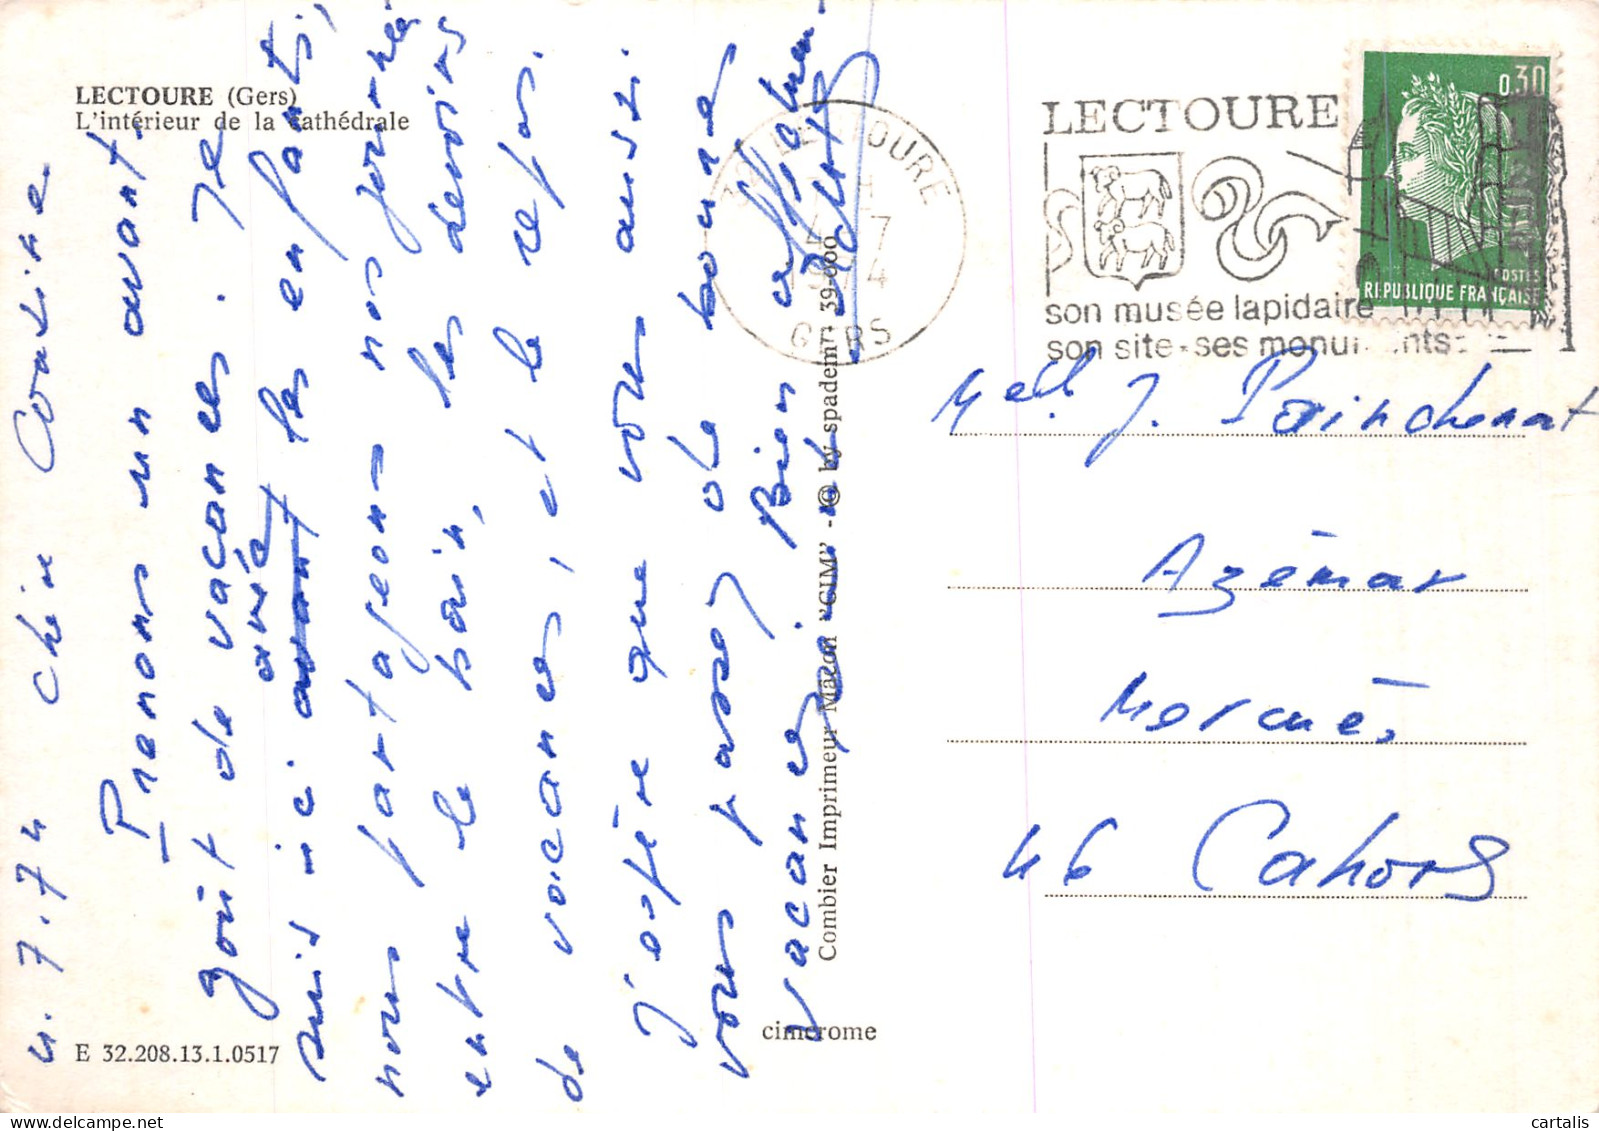 LECTOURE (Gers)
L'intérieur de la cathédrale
4.7.74 chère Cousine
Prenons un avant-
goût de vacances. Je
suis ici avec les enfants,
nous partageons nos journées
entre le bain, les devoirs
de vacances, et le repos.
J'espère que vous aussi
vous passez de bonnes
vacances. Bien affectueu-
E 32.208.13.1.0517
cimcrome
Combier Imprimeur Mâcon "CIM" - © by spadem 39-000
LECTOURE
GERS
LECTOURE
son musée lapidaire
son site-ses monuments
0,30
POSTES
REPUBLIQUE FRANÇAISE
Mell J. Poinchenat
Azémar
Mercuès
46 Cahors
cartalis